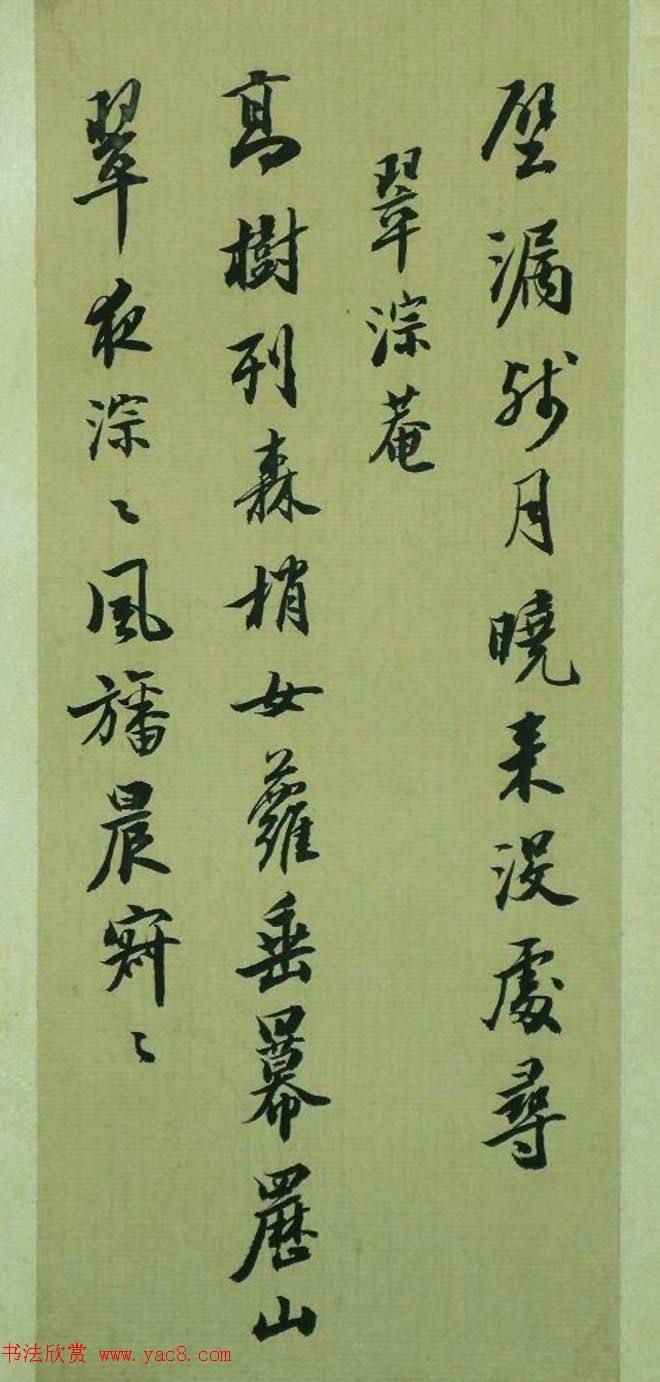 壁漏殘月曉來沒處尋
翠淙菴
高樹列森梢女蘿垂羃䍥山
翠夜淙〻風旛晨寂〻
书法欣赏 www.yac8.com